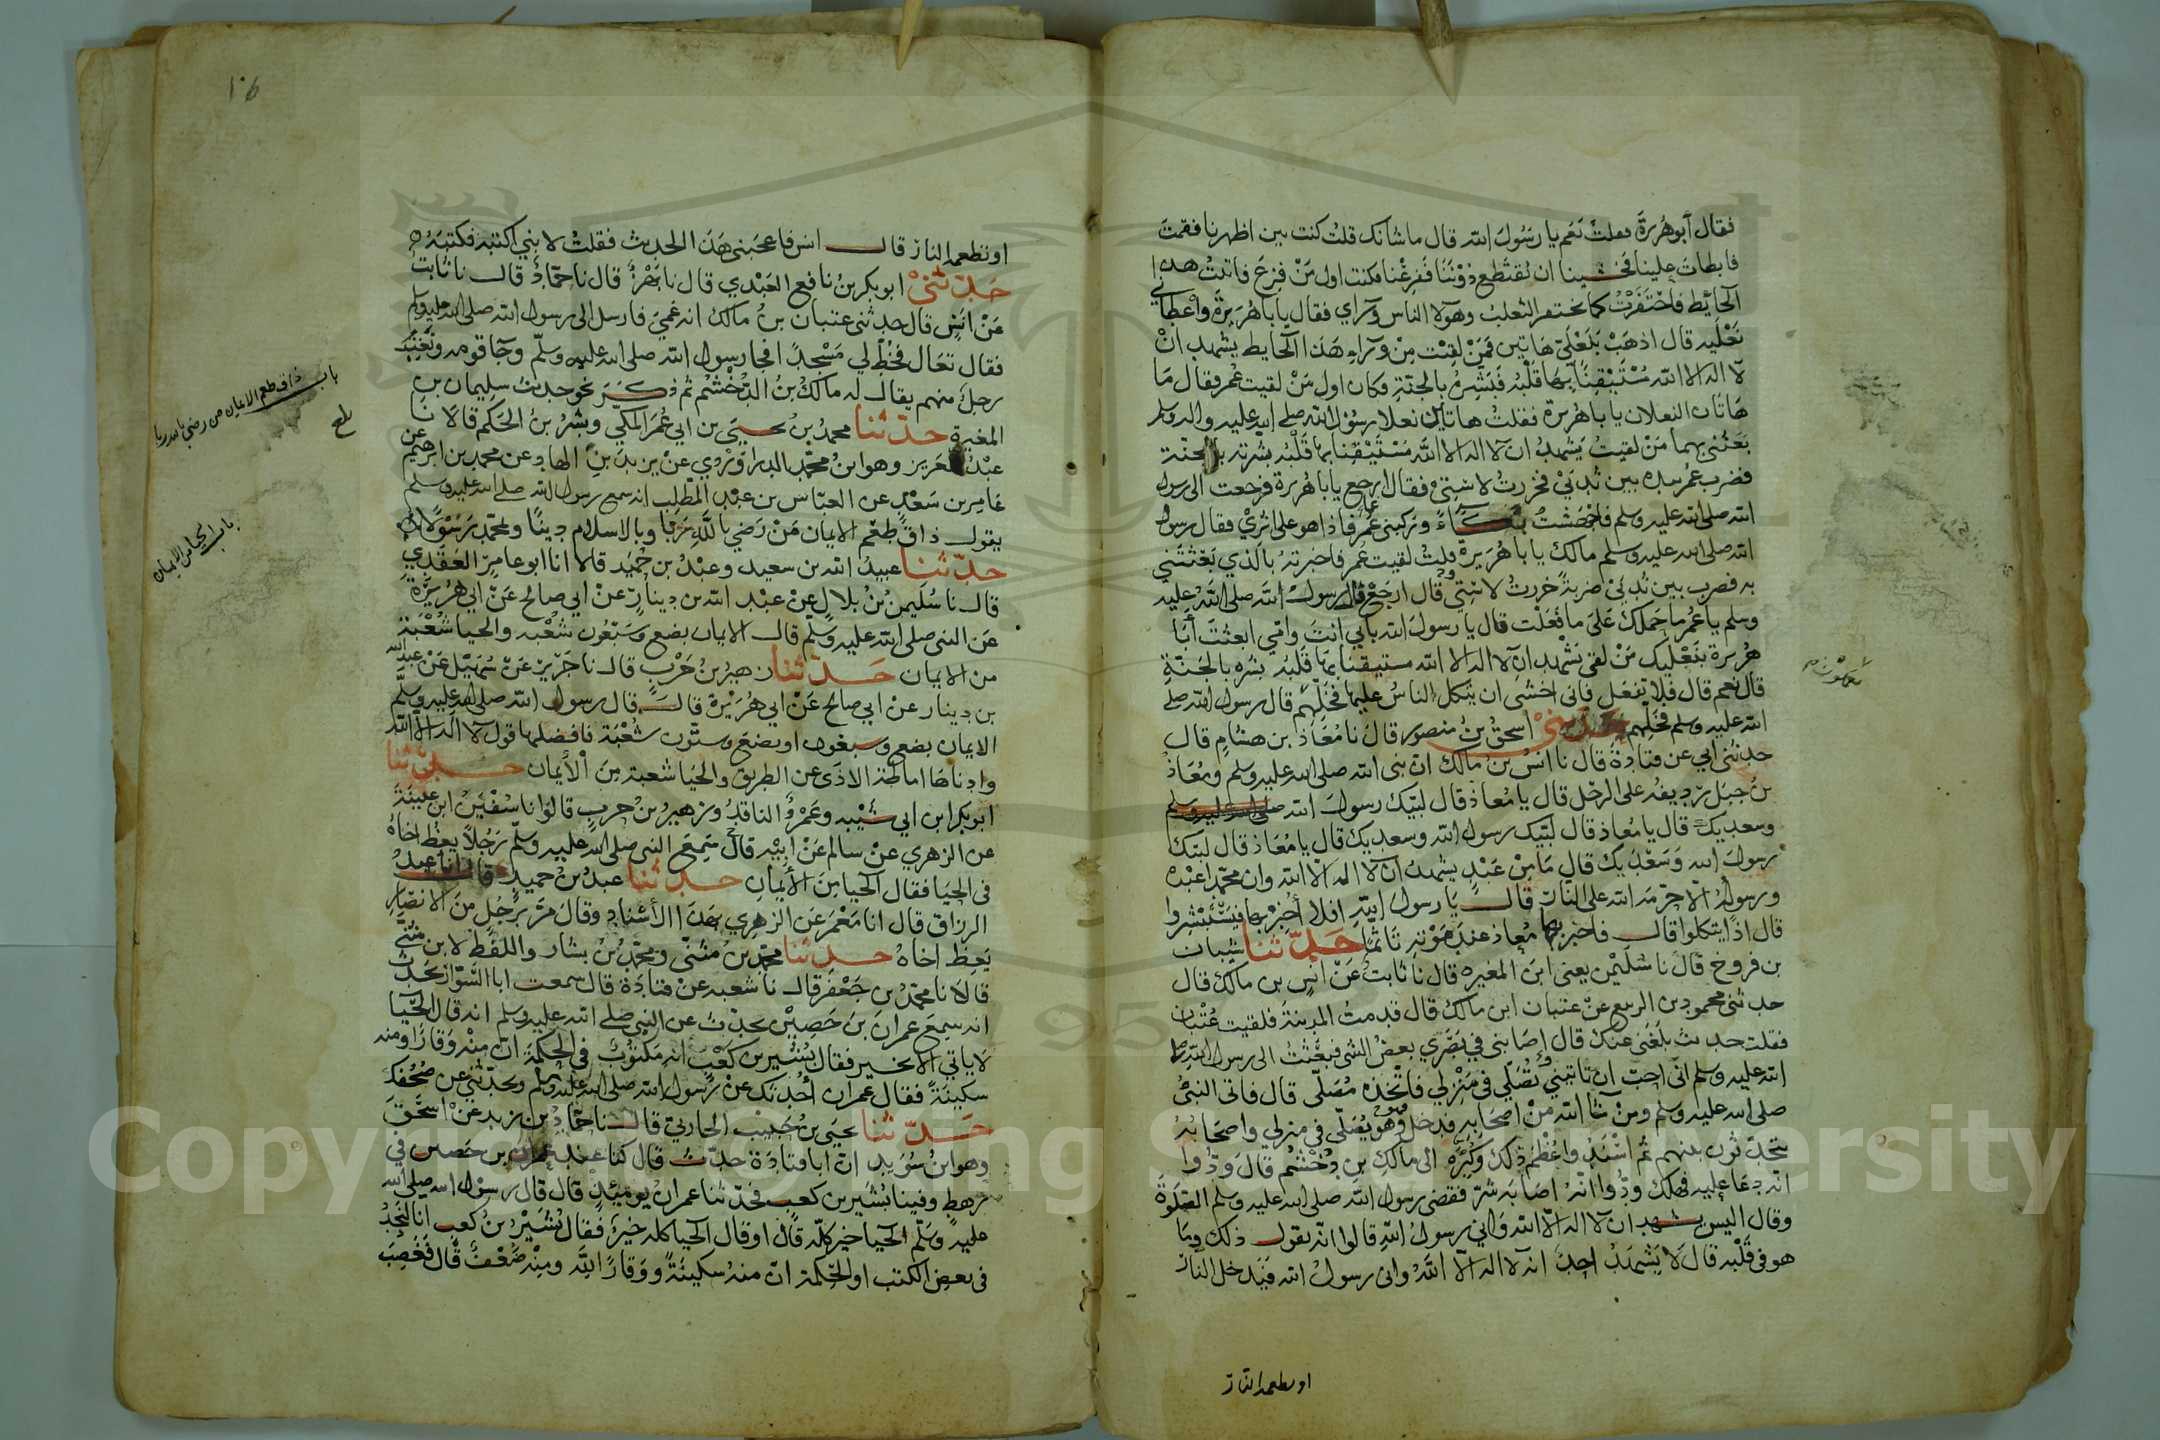 فقال أبو هُريرةَ فقلتُ نَعَم يا رَسُولَ الله قال ما شانك قلتُ كنت بين اظهرنا فقمتَ
فابطاتَ علينا فخشينا ان تُقتَطع دُوْنَنَا فَفَزِعْنا فكنت اول مَنْ فزعَ فاتيتُ هذا
الحَايُط فاحْتَفَزْتُ كما يحتفر الثعلبُ وهؤلا الناس ورآي فقال يا با هُرَيرةَ واعطاني
نَعْلَيه قال اذهَبْ بنَعْلَيَّ هَاتين فمَنْ لقِيْتَ مِنْ ورآءِ هَذا الحايط يشهد انْ
لا اله الا الله مُسْتَيْقِنًا بهَا قَلْبُه فَبَشِّرهُ بالجنّةِ فكان اول مَنْ لقيت عُمر فقال مَا
هَاتَان النعلان يا با هُريرة فقلتُ هاتان نعلا رسُوْل الله صلى الله عليه واله وسلم
بَعَثنى بهما مَنْ لقيتُ يَشهدُ ان لا اله الا الله مُسْتَيْقنا بها قَلْبُه بشرته بالجنة
فضرب عُمر بيده بين ثَديَيّ فخررتُ لاستِيْ فقال ارجع يا با هُريرة فرجعت الى رسول
الله صلى الله عليه وسلم فاجهَشتُ بُكاءً وركبنى عُمر فاذا هو على اثريْ فقال رسول
الله صلى الله عليه وسلم مالك يا با هُرَيرةَ قلتُ لقيت عُمر فاخبرتهُ بالذي بَعَثتَني
به فضرب بين ثديَيّ ضربةً خررتُ لاسْتِي وقال ارجعْ قال رسولُ الله صلى الله عليه
وسلم يا عُمر ما حَملكَ عَلَى ما فَعَلْت قال يا رسولَ الله بابي انتَ وامّي ابعثتَ أبَا
هُريرة بنَعْليك مَنْ لقى يشهد ان لا اله الا الله مستيقنا بهَا قلبُه بشره بالجَنّةِ
قال نعم قال فلا تفعل فانى اخشى ان يتكل الناسُ عليها فخَلِّهم قال رسول الله صلى
الله عليه وسلم فخلّهم حدثنيْ اسحقُ بنُ منصور قال نا مُعَاذ بن هشامٍ قال
حدثنى ابي عن قتادةَ قال نا انسُ بنُ مالك انّ نبى الله صلى الله عليه وسلم ومُعَاذ
بنُ جبَل رديفُه على الرحْل قال يا مُعاذ قال لبيك رسولَ الله صلى الله عليه وسلم
وسعديك قال يا مُعاذ قال لبَّيك رسول الله وسعديك قال يا مُعَاذ قال لبيك
رسولَ الله وَسَعْدَيك قال مَا مِنْ عَبْدٍ يشهدُ ان لا اله الا الله وان محمّدا عبْده
ورسولُهُ الا حرّمَه الله على النار قال يا رسول الله افلا أُخبرُ بها فيَسْتَبشروا
قال اذًا يتكلوا قال فاخبر بها معاذ عند مَوْته تَاثمًا حدّثنا شيبان
بن فروخ قال نا سُليْمن يعنى ابنَ المغيره قال نا ثابتُ عَنْ انس بن مالك قال
حدثنى محمود بن الربيع عنْ عتبان ابن مالك قال قدمتُ المدينةَ فلقيت عِتْبان
فقلت حديث بَلغَنى عنك قال اصَابنى في بَصَري بعضُ الشى فبعَثْتُ الى رسول الله صلى
الله عليه وسلم انّى احِبّ ان تاتينىْ وتُصَلي فى مَنْزلي فاتّخذه مُصَلّى قال فاتى النبىُّ
صلى الله عليه وسلم ومَنْ شآ اللهُ منْ اصحَابه فدخل وهُوَ يُصَلّى في منزلي واصحَابهُ
يتحدّثون بينهم ثم اسْنَدُوا عُظْمَ ذلك وكُبْرَه الى مالك بن دُخْشُم قال وَدُّوا
انّه دعَا عليه فهلك ودُّوا انه اصَابَه شرّ فقضى رسول الله صلى الله عليه وسلم الصَّلوةَ
وقال اليس يشهد ان لا اله الا الله وَاني رسولُ الله قالوا انّه يقول ذلك ومَا
هو فى قَلْبه قال لا يَشْهَدُ احدٌ انه لا اله الا اللهُ وانى رسولُ الله فيَدخل النارَ
او تطعمه النار
١٠٦
او تطعمه النار قال انس فاعجبَنى هَذا الحديث فقلتُ لابني اكتبه فكتبَهُ
حدّثنيْ ابو بكر بنُ نافع العَبْدي قال نا بَهْزٌ قال نا حمّادٌ قال نا ثَابتُ
عَنْ انَسٍ قال حدثنى عتبان بنُ مالك انه عَميَ فارسل الى رسول الله صلى الله عليه وسلم
فقال تعَال فخُطّ لي مَسْجدًا فجا رسول الله صلى الله عليه وسلّم وجآ قومه ونُعِتَ
رجلٌ منهم يقال له مالكُ بنُ الدُّخْشُم ثم ذكرَ نحو حديث سليمان بن
المغيرة حدّثنا محمدُ بنُ يحيى بن ابي عُمَرَ المكّي وبشرُ بنُ الحَكم قالا نا
عبْدُ العَزيز وهو ابنُ محمّد الدرَاوَرْدي عنْ يزيدَ بنِ الهاد عن محمد بن ابرهيم عن
عَامِر بن سَعْدٍ عن العبّاس بن عبْد المُطّلِب انه سمع رسول الله صلى الله عليه وسلم
يقول ذاقَ طعْم الايمان مَنْ رَضي باللهِ رَبًّا وبالاسلام دينًا وبمحمّد رَسُوْلاً
حدّثنا عبيدُ الله بن سعيد وعبْدُ بن حُميَد قالا انا ابو عامِر العَقَدِي
قال نا سُلَيمنُ بْنُ بلالٍ عنْ عبْد الله بن دينارٍ عنْ ابي صالح عَنْ ابي هُرَيْرَةَ
عَن النبى صلى الله عليه وسلّم قال الايمان بضع وسَبْعُون شعْبه والحيا شُعْبَة
من الايمان حدّثنا زهيرُ بنُ حَرْب قال نا جَرِيْر عَنْ سُهَيْل عَنْ عبد الله
بن دينار عنْ ابي صالح عَنْ ابي هُرَيْرةَ قال قال رسول الله صلى الله عليه وسلّم
الايمان بضع وسبعُون او بضعَ وستّون شُعْبَة فافضلها قول لا اله الا الله
وادناهَا اماطَة الاذَى عن الطريق والحيَا شعبة منَ الأيمان حدّثنا
ابو بكر ابن ابي شَيْبه وعَمْروٌ الناقدُ وزهيرُ بنُ حربٍ قالوا نا سُفْيَنُ ابن عُيينَةَ
عن الزهري عنْ سالم عَنْ ابيْه قال سَمِعَ النبى صلى الله عليه وسلّم رَجُلاً يعظُ اخاهُ
فى الحيَا فقال الحيا منَ الأيمان حدّثنا عبدُ بنُ حميدٍ قال انا عبدُ
الرزاق قال انا مَعْمَر عَن الزهري بهَذا الأسْنادِ وقالَ مرَّ برَجُلٍ منَ الانصَارِ
يَعِظُ اخاهُ حدّثنا محمّدُ بنُ مثنّى ومحمّدُ بنُ بشار واللفظ لابن مثنّى
قالاَ نا محمّدُ بن جَعْفر قال نا شعبه عنْ قتادَة قال سمعت ابا السَّوّار يُحَدّثُ
انه سمِعَ عمرانَ بنَ حَصِيْن يحدّث عن النبي صلى الله عليه وسلم انه قال الحَيا
لا ياتي الا بخير فقال بُشَيْر بن كَعْب انه مَكتوُبٌ في الحِكمَةِ انّ منْه وَقارًا ومنه
سكينَةً فقال عمران أُحُدثك عنْ رسول الله صلى الله عليه وسلم وتحدّثني عن صُحُفكَ
حدّثنا يحيَى بنُ حَبيْب الحارثي قال نا حمّادُ بن زيد عَنْ اسحَقَ
وهو ابنُ سُوَيد انّ ابا قتادَة حدّث قال كنا عند عمران بن حَصين في
رهطٍ وفينا بُشَير بن كعب فحدّثنا عمرانُ يومئذٍ قال قال رسوْل الله صلى الله
عليه وسَلّم الحَيا خير كلّه قال او قال الحَيا كله خيرٌ فقال بُشَيْرُ بنُ كعب انا لنجدُ
فى بعض الكتب او الحّكمة انّ منه سكينَةً ووَقارًا لله ومنْه ضَعْفٌ قال فَغَضِبَ
باب ذاق طعم الايمان من رضي بالله ربا
بلغ
باب الحيا من الايمان